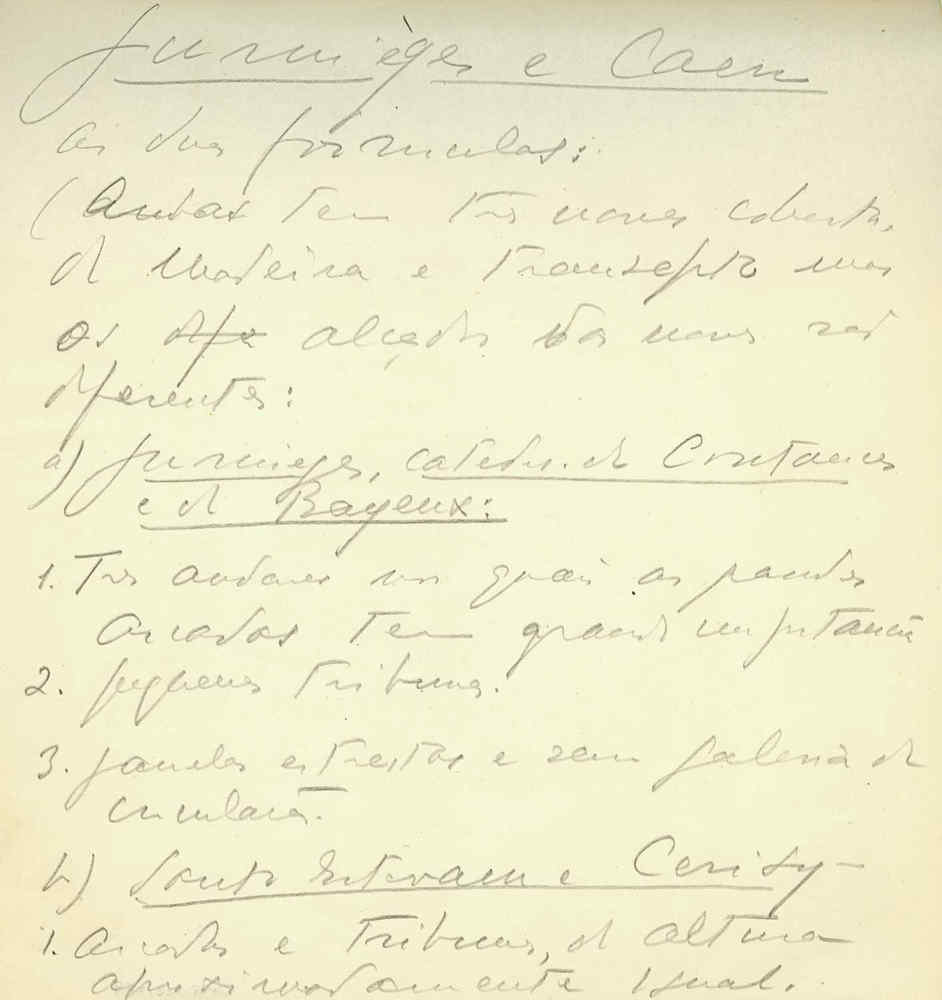 Jumièges e Caen
as duas fórmulas:
(Ambas tem três naves cobertas
de madeira e transepto mas
os dife alçados das naves são
diferentes:
a) Jumieges, catedr. de Coutances
e de Bayeux:
1. Tres andares nos quais as grandes
arcadas tem grande importancia
2. pequenas tribunas.
3. janelas estreitas e sem galeria de
circulação.
b) Santo Estevam e Cerisy-
1. arcadas e tribunas, de altura
aproximadamente igual.